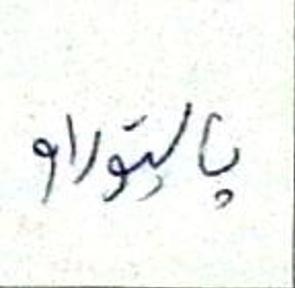 پالیتوراو